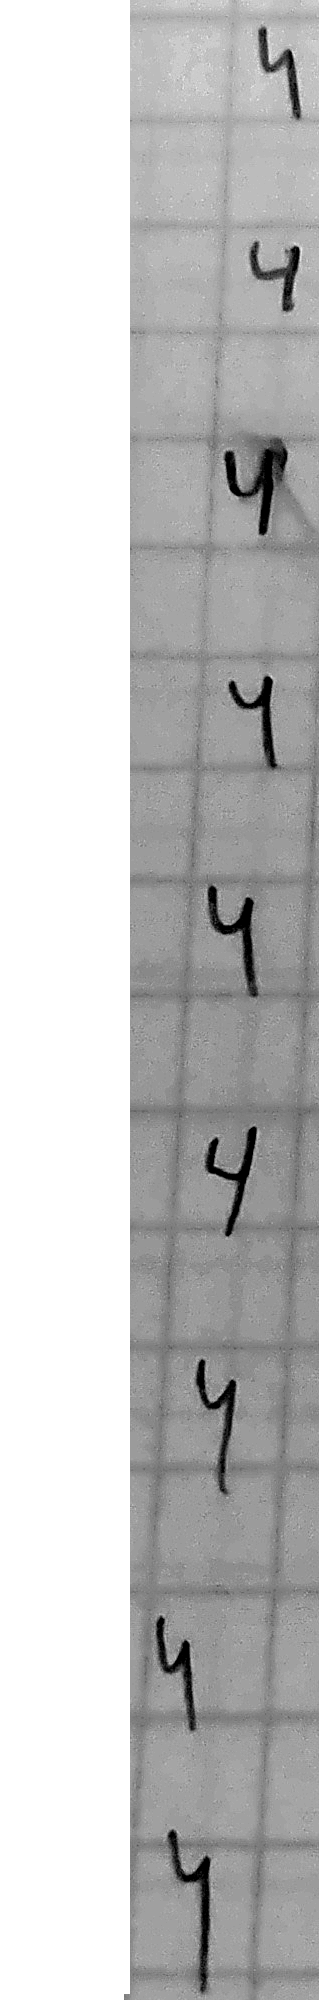 4
4
4
4
4
4
4
4
4